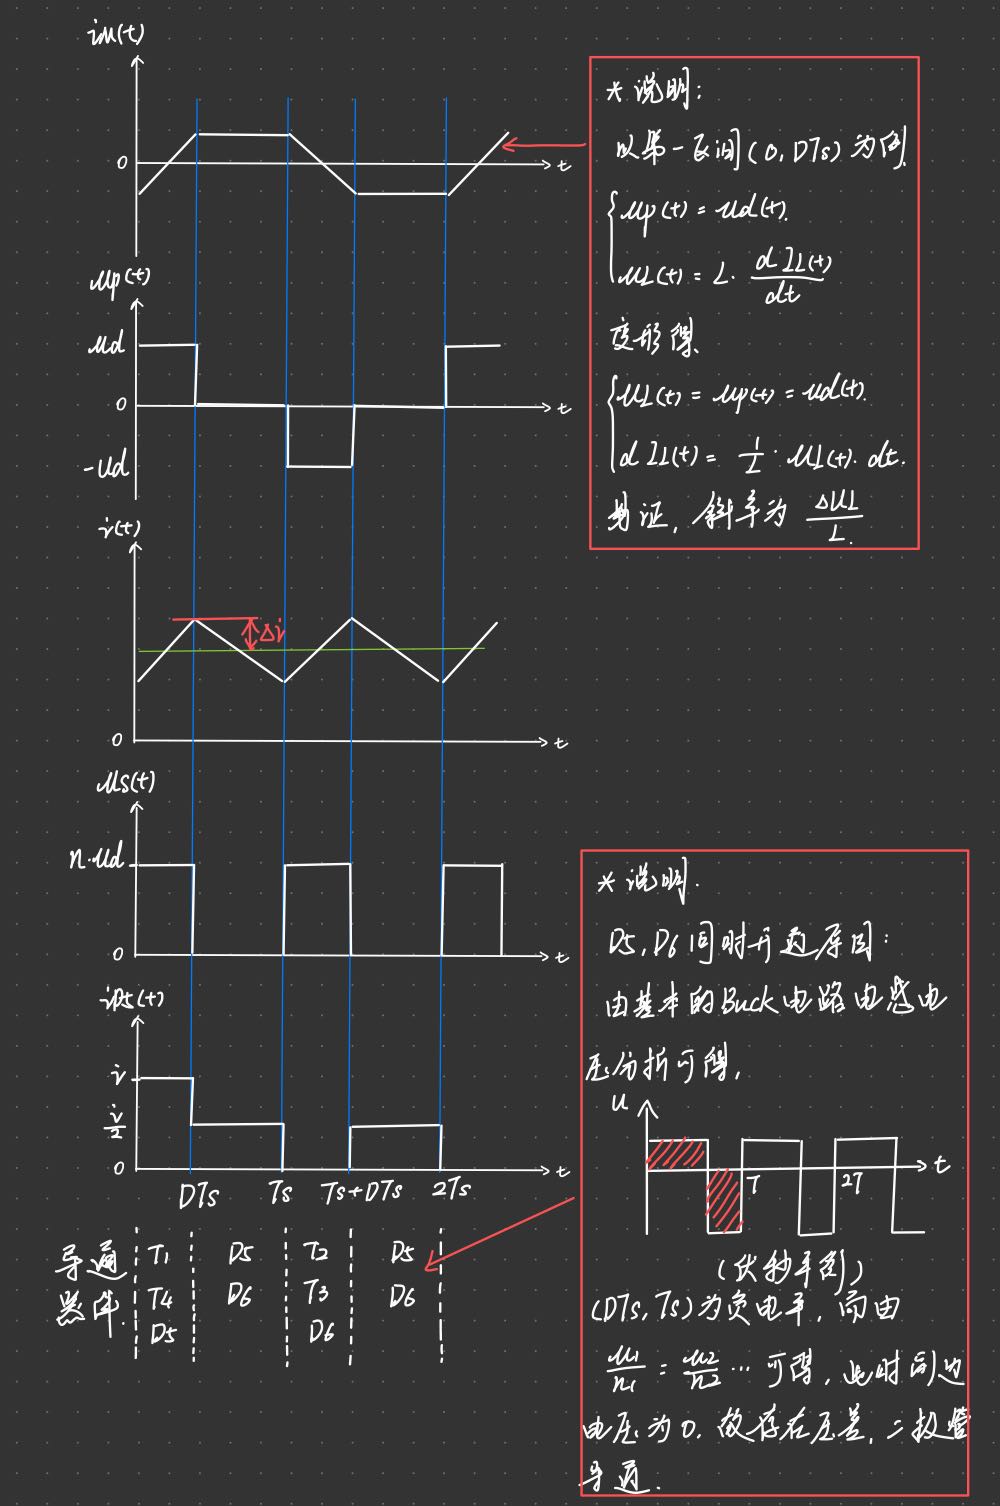 iM(t)
0
t
up(t)
ud
0
t
-ud
i(t)
Δi
0
t
us(t)
n·ud
0
t
iD5(t)
i
i/2
0
t
DTs Ts Ts+DTs 2Ts
导通
器件.
T1 D5 T2 D5
T4 D6 T3 D6
D5 D6
* 说明:
以第一区间(0, DTs)为例
up(t) = ud(t).
uL(t) = L · dIL(t)/dt
变形得
uL(t) = up(t) = ud(t).
dIL(t) = 1/L · uL(t) · dt.
易证, 斜率为 ΔUL/L.
* 说明.
D5, D6 同时开通原因:
由基本的Buck电路电感电
压分析可得,
u
t
T 2T
(伏秒平衡)
(DTs, Ts)为负电平, 而由
u1/n1 = u2/n2 … 可得, 此时副边
电压为0. 故存在压差, 二极管
导通.